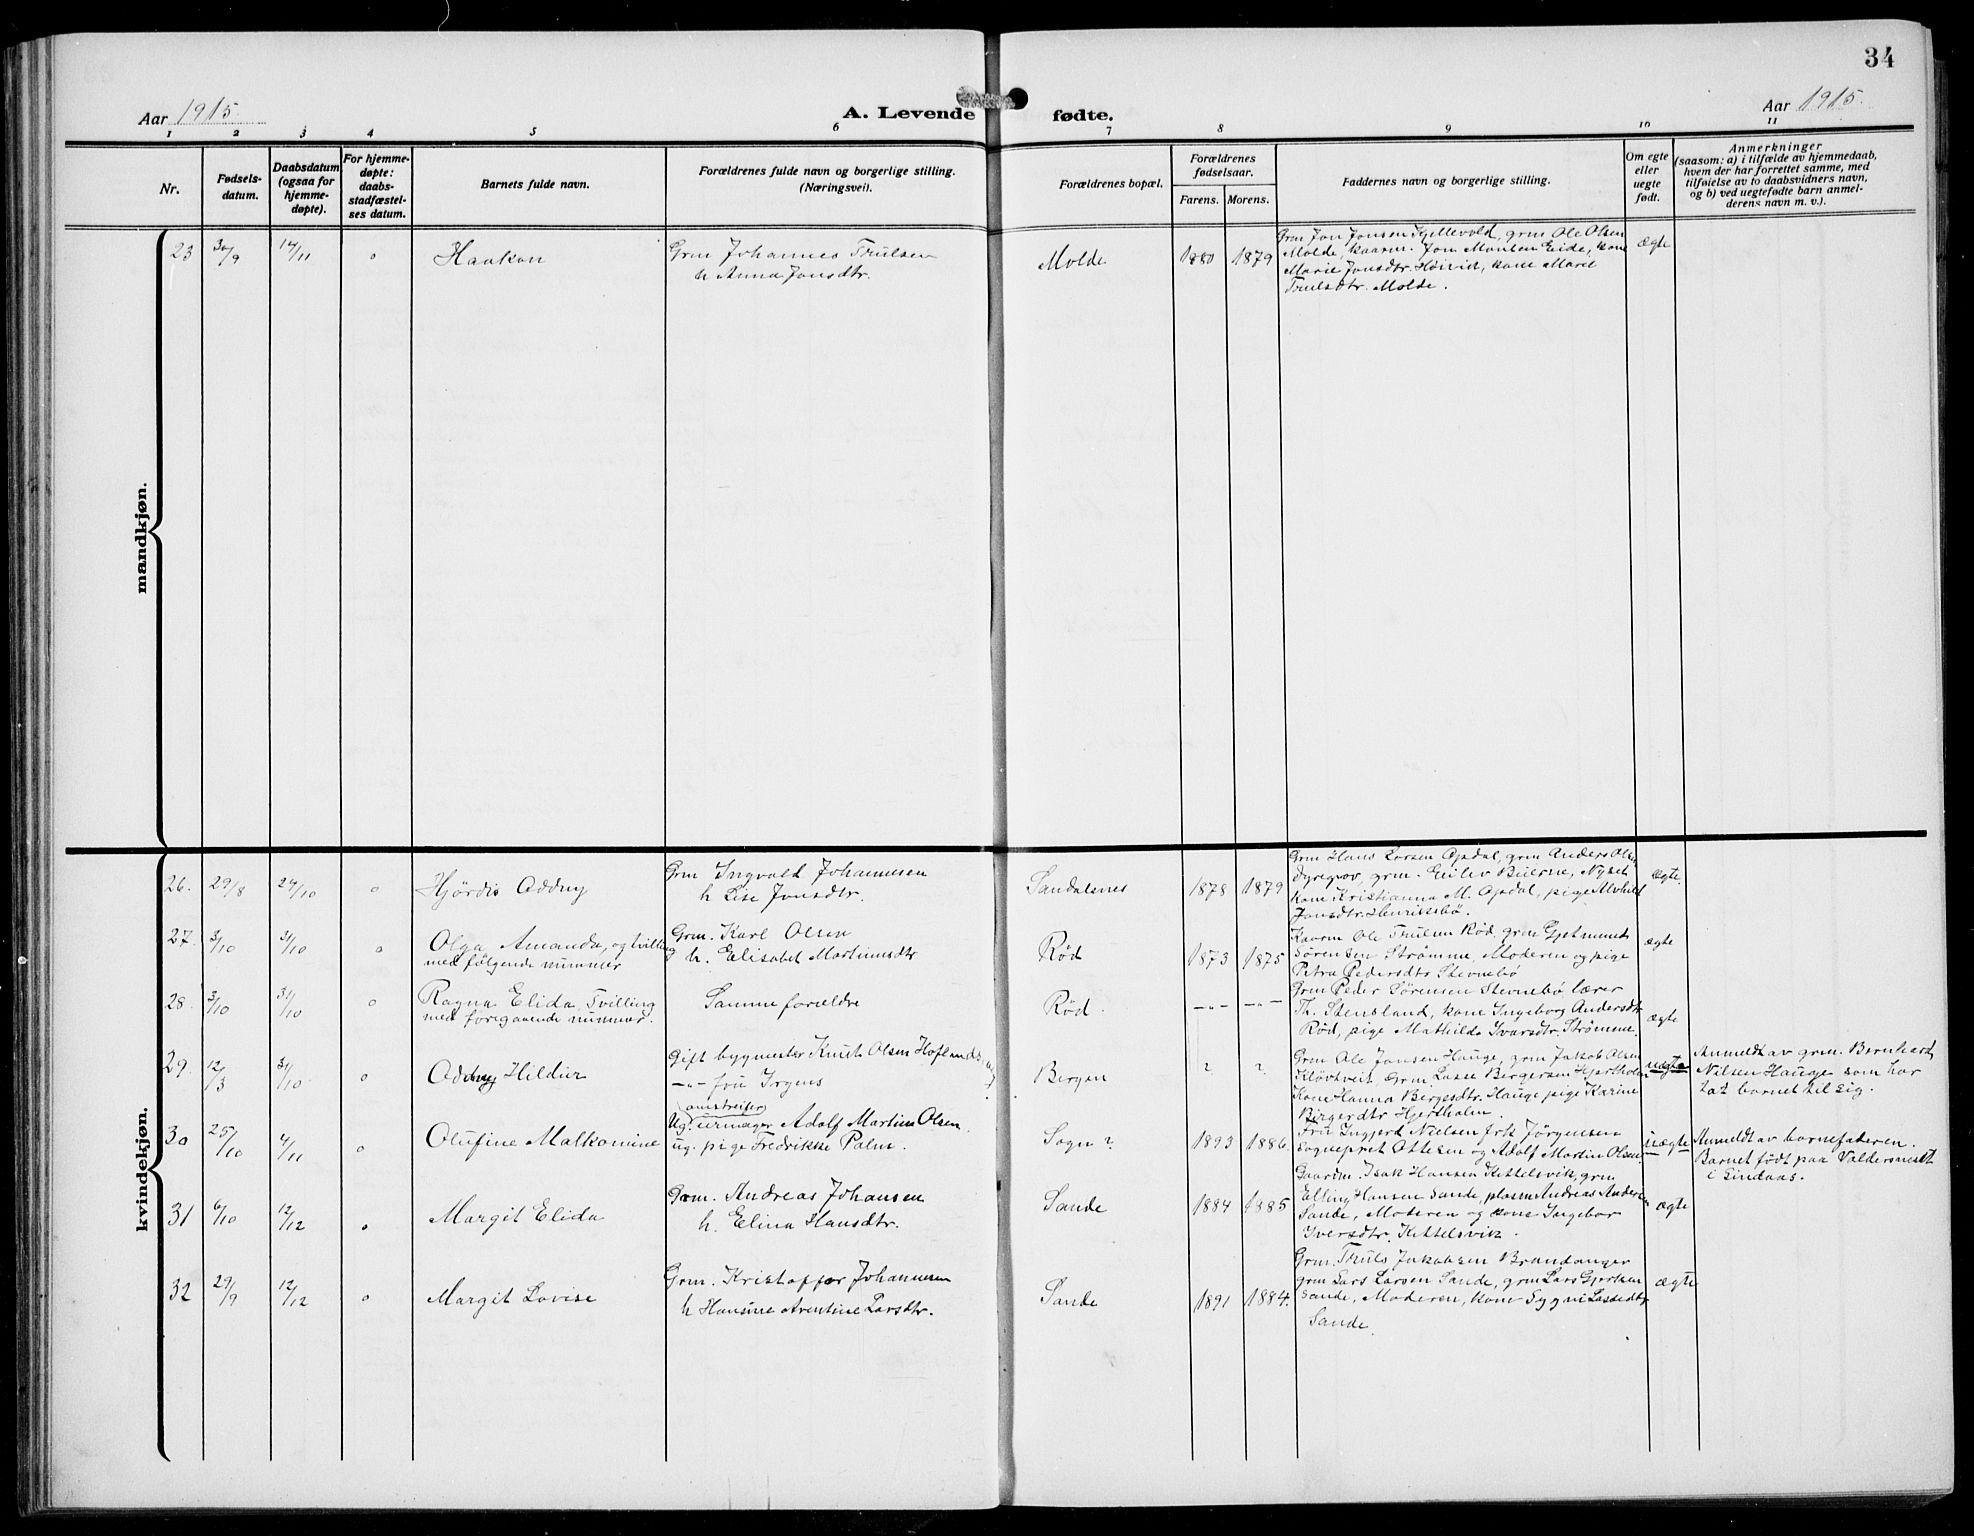 34
Aar 1915.
A. Levende fødte.
Aar 1915.
1 2 3 4 5 6 7 8 9 10 11
Nr.
Fødsels-
datum.
Daabsdatum
(ogsaa for
hjemme-
døpte).
For hjemme-
døpte:
daabs-
stadfæstel-
ses datum.
Barnets fulde navn.
Forældrenes fulde navn og borgerlige stilling.
(Næringsvei).
Forældrenes bopæl.
Forældrenes
fødselsaar.
Farens. Morens.
Faddernes navn og borgerlige stilling.
Om egte
eller
uegte
født.
Anmerkninger
(saasom: a) i tilfælde av hjemmedaab,
hvem der har forrettet samme, med
tilføielse av to daabsvidners navn,
og b) ved uegtefødte barn anmel-
derens navn m. v.).
mandkjøn.
23 30/9 14/11 o Haakon
Grm Johannes Trulsen
h Anna Jonsdtr.
Molde 1880 1879
Grm Jon Jonsen Gjellevold, grm Ole Olsen
Molde, kaarm. Jon Monsen Eide, kone
Marie Jonsdtr. Høivik, kone Maret
Trulsdtr. Molde.
ægte
kvindekjøn.
26. 29/8 24/10 o Hjørdis Oddny
Grm Ingvald Johannesen
h Lise Jonsdtr.
Sandalsnes 1878 1879
Grm Hans Larsen Opdal, grm Anders Olsen
Dyregrov, grm. Enlev Beierne, Nyset
kone Kristianna M. Opdal, pige Alvhild
Jonsdtr. Henriksbø.
ægte.
27. 3/10 31/10 o Olga Amanda, og tvilling
med følgende nummer
Grm. Karl Olsen
h. Elisabet Martinusdtr
Rød 1873 1875
Kaarm Ole Trulsen Rød, grm Gjetmund
Sørensen Strømme, Moderen og pige
Petra Pedersdtr Stevnebø
ægte
28. 3/10 31/10 o Ragna Elida, Tvilling
med foregaaende nummer.
Samme forældre
Rød. -"- -"-
Grm Peder Sørensen Stevnebø lærer
Th. Stensland, kone Ingeborg Andersdtr
Rød, pige Mathilde Ivarsdtr Strømme.
ægte
29. 12/3 31/10 o Oddny Hildur
Gift bygmester Knut Olsen Hofland
-"- fru Irgens
Bergen ? ?
Grm Ole Jonsen Hauge, grm Jakob Olsen
Kløvtveit, Grm. Lasse Bergersen Hjertholm
Kone Hanna Bergesdtr. Hauge pige Karine
Birgerdtr Hjertholm.
uægte
Anmeldt av grm. Bernhard
Nilsen Hauge som har
tat barnet til sig.
30 25/10 4/11 o Olufine Malkomine
omstreifer
Ug. urmager Adolf Martin Olsen.
ug. pige Fredrikke Palm.
Sogn? 1893 1886.
Fru Ingjerd Nielsen frk Jörgensen
Sogneprest Ottesen og Adolf Martin Olsen.
uægte
Anmeldt av barnefaderen.
Barnet født paa Valdersneset
i Lindaas.
31 6/10 12/12 o Margit Elida
Grm. Andreas Johansen
h. Elina Hansdtr.
Sande 1884 1885
Gaardm. Isak Hansen Kittelsvik, grm
Elling Hansen Sande, plasm Andreas Andersen
Sande, Moderen og kone Ingebor
Iversdtr. Kittelsvik.
ægte
32 29/9 12/12 o Margit Lovise
Grm. Kristoffer Johannesen
h Hansine Arentine Larsdtr.
Sande 1891 1884.
Grm. Truls Jakobsen Brandanger
grm Lars Larsen Sande, grm Lars Gjertsen
Sande, Moderen, kone Sygni Lassedtr
Sande.
ægte